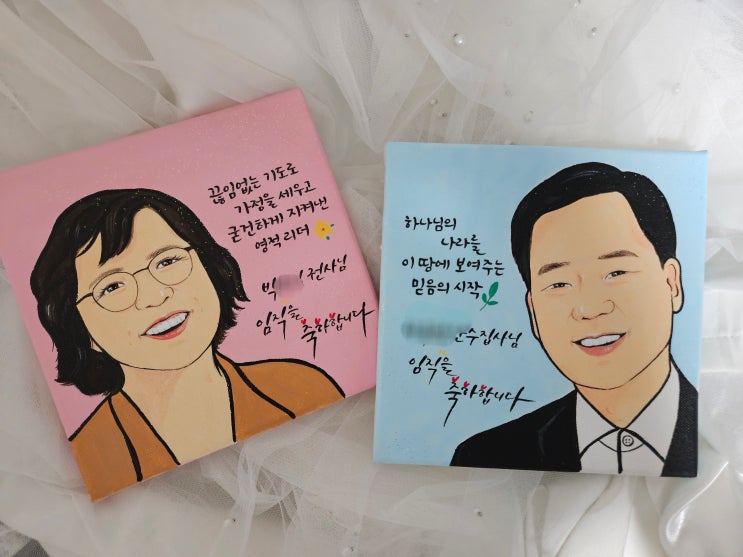 끊임없는 기도로
가정을 세우고
굳건하게 지켜낸
영적 리더
박 전사님
임직을
축하합니다
하나님의
나라를
이 땅에 보여주는
믿음의 시작
수집사님
임직을
축하합니다